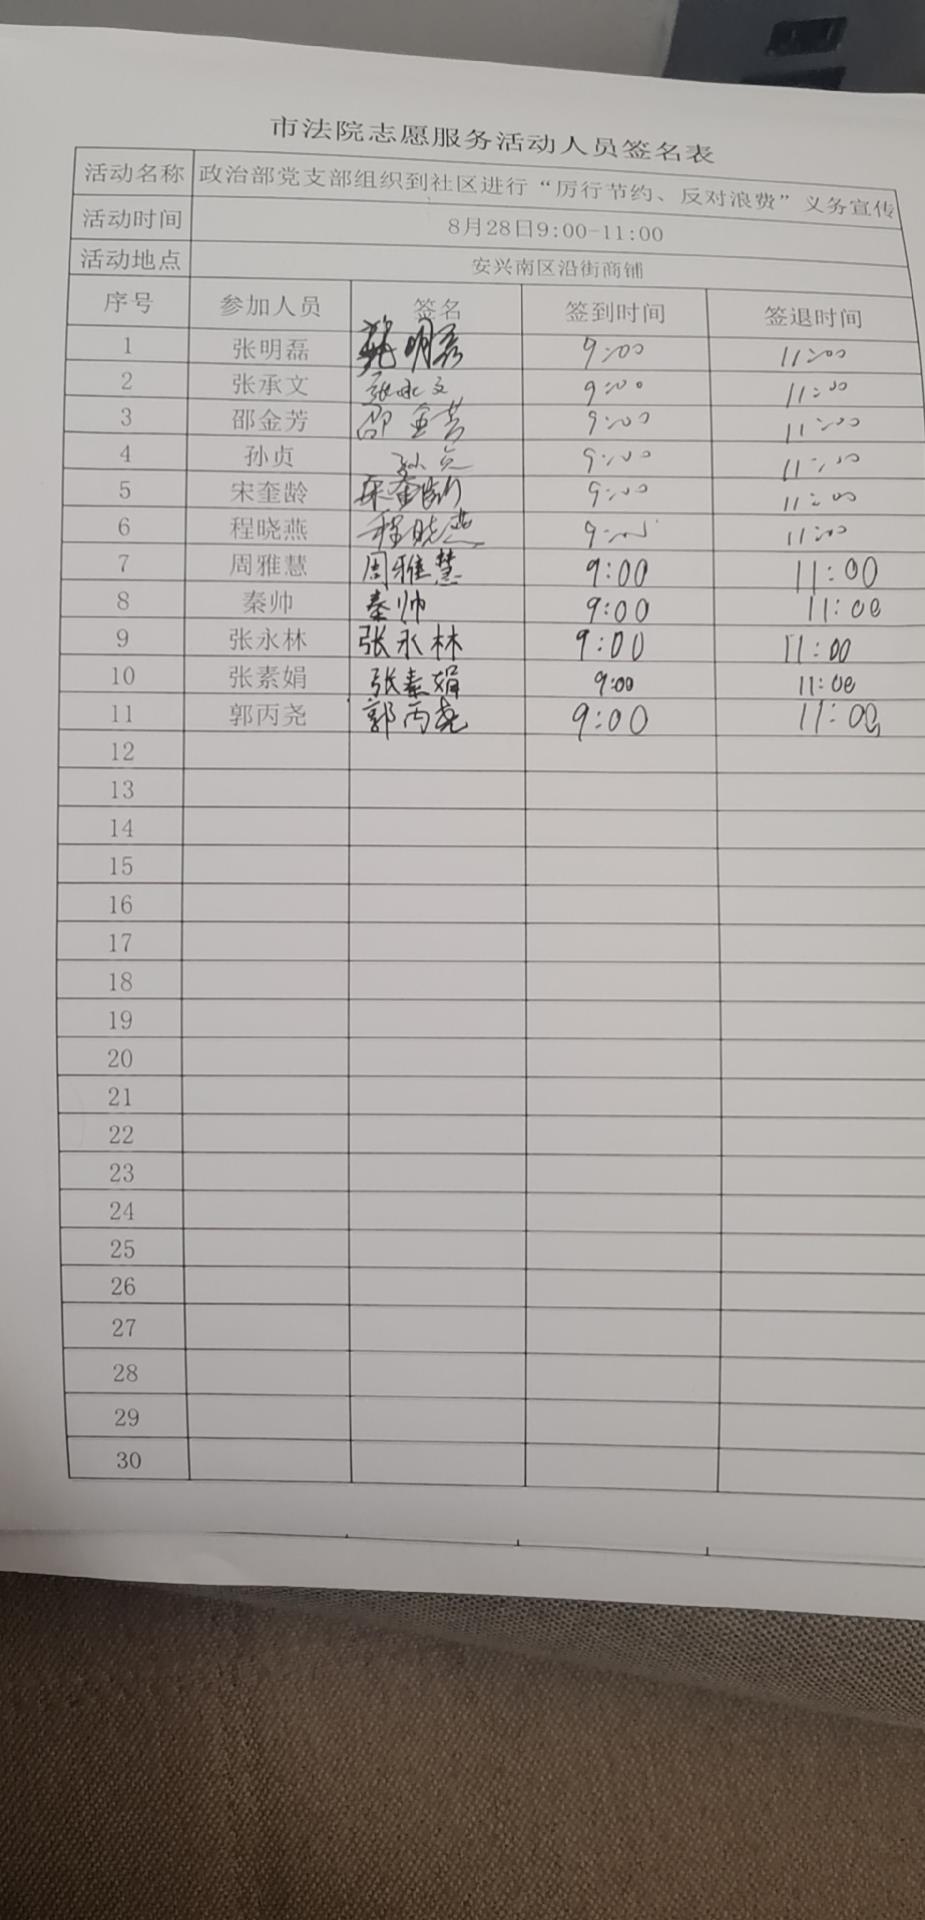 市法院志愿服务活动人员签名表
活动名称 政治部党支部组织到社区进行“厉行节约、反对浪费”义务宣传
活动时间 8月28日9:00-11:00
活动地点 安兴南区沿街商铺
序号 参加人员 签名 签到时间 签退时间
1 张明磊 张明磊 9:00 11:00
2 张承文 张承文 9:00 11:00
3 邵金芳 邵金芳 9:00 11:00
4 孙贞 孙贞 9:00 11:00
5 宋奎龄 宋奎龄 9:00 11:00
6 程晓燕 程晓燕 9:00 11:00
7 周雅慧 周雅慧 9:00 11:00
8 秦帅 秦帅 9:00 11:00
9 张永林 张永林 9:00 11:00
10 张素娟 张素娟 9:00 11:00
11 郭丙尧 郭丙尧 9:00 11:00
12
13
14
15
16
17
18
19
20
21
22
23
24
25
26
27
28
29
30